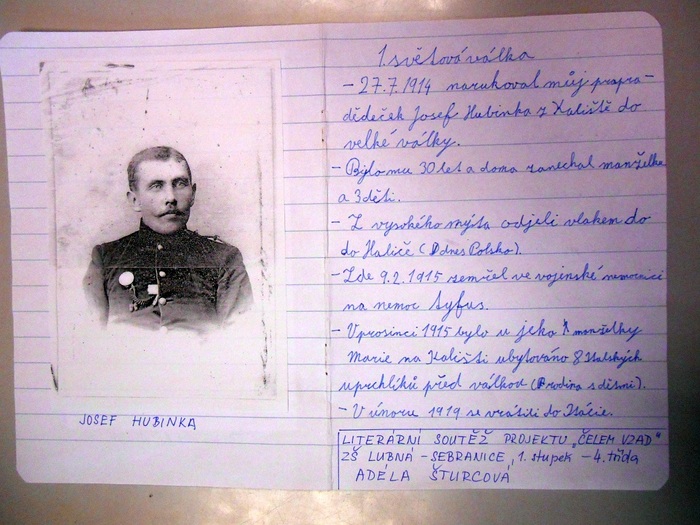 JOSEF HUBINKA
1. světová válka
- 27.7.1914 narukoval můj prapra-
dědeček Josef Hubinka z Kaliště do
velké války.
- Bylo mu 30 let a doma zanechal manželku
a 3 děti.
- Z vysokého mýta odjeli vlakem do
do Haliče (Dnes Polsko).
- Zde 9.2.1915 zemřel ve vojenské nemocnici
na nemoc tyfus.
- V prosinci 1915 bylo u jeho manželky
Marie na Kališti ubytováno 8 italských
uprchlíků před válkou (Rodina s dětmi).
- V únoru 1919 se vrátili do Itálie.
LITERÁRNÍ SOUTĚŽ PROJEKTU „ČELEM VZAD"
ZŠ LUBNÁ - SEBRANICE, 1. stupek - 4. třída
ADÉLA ŠTURCOVÁ